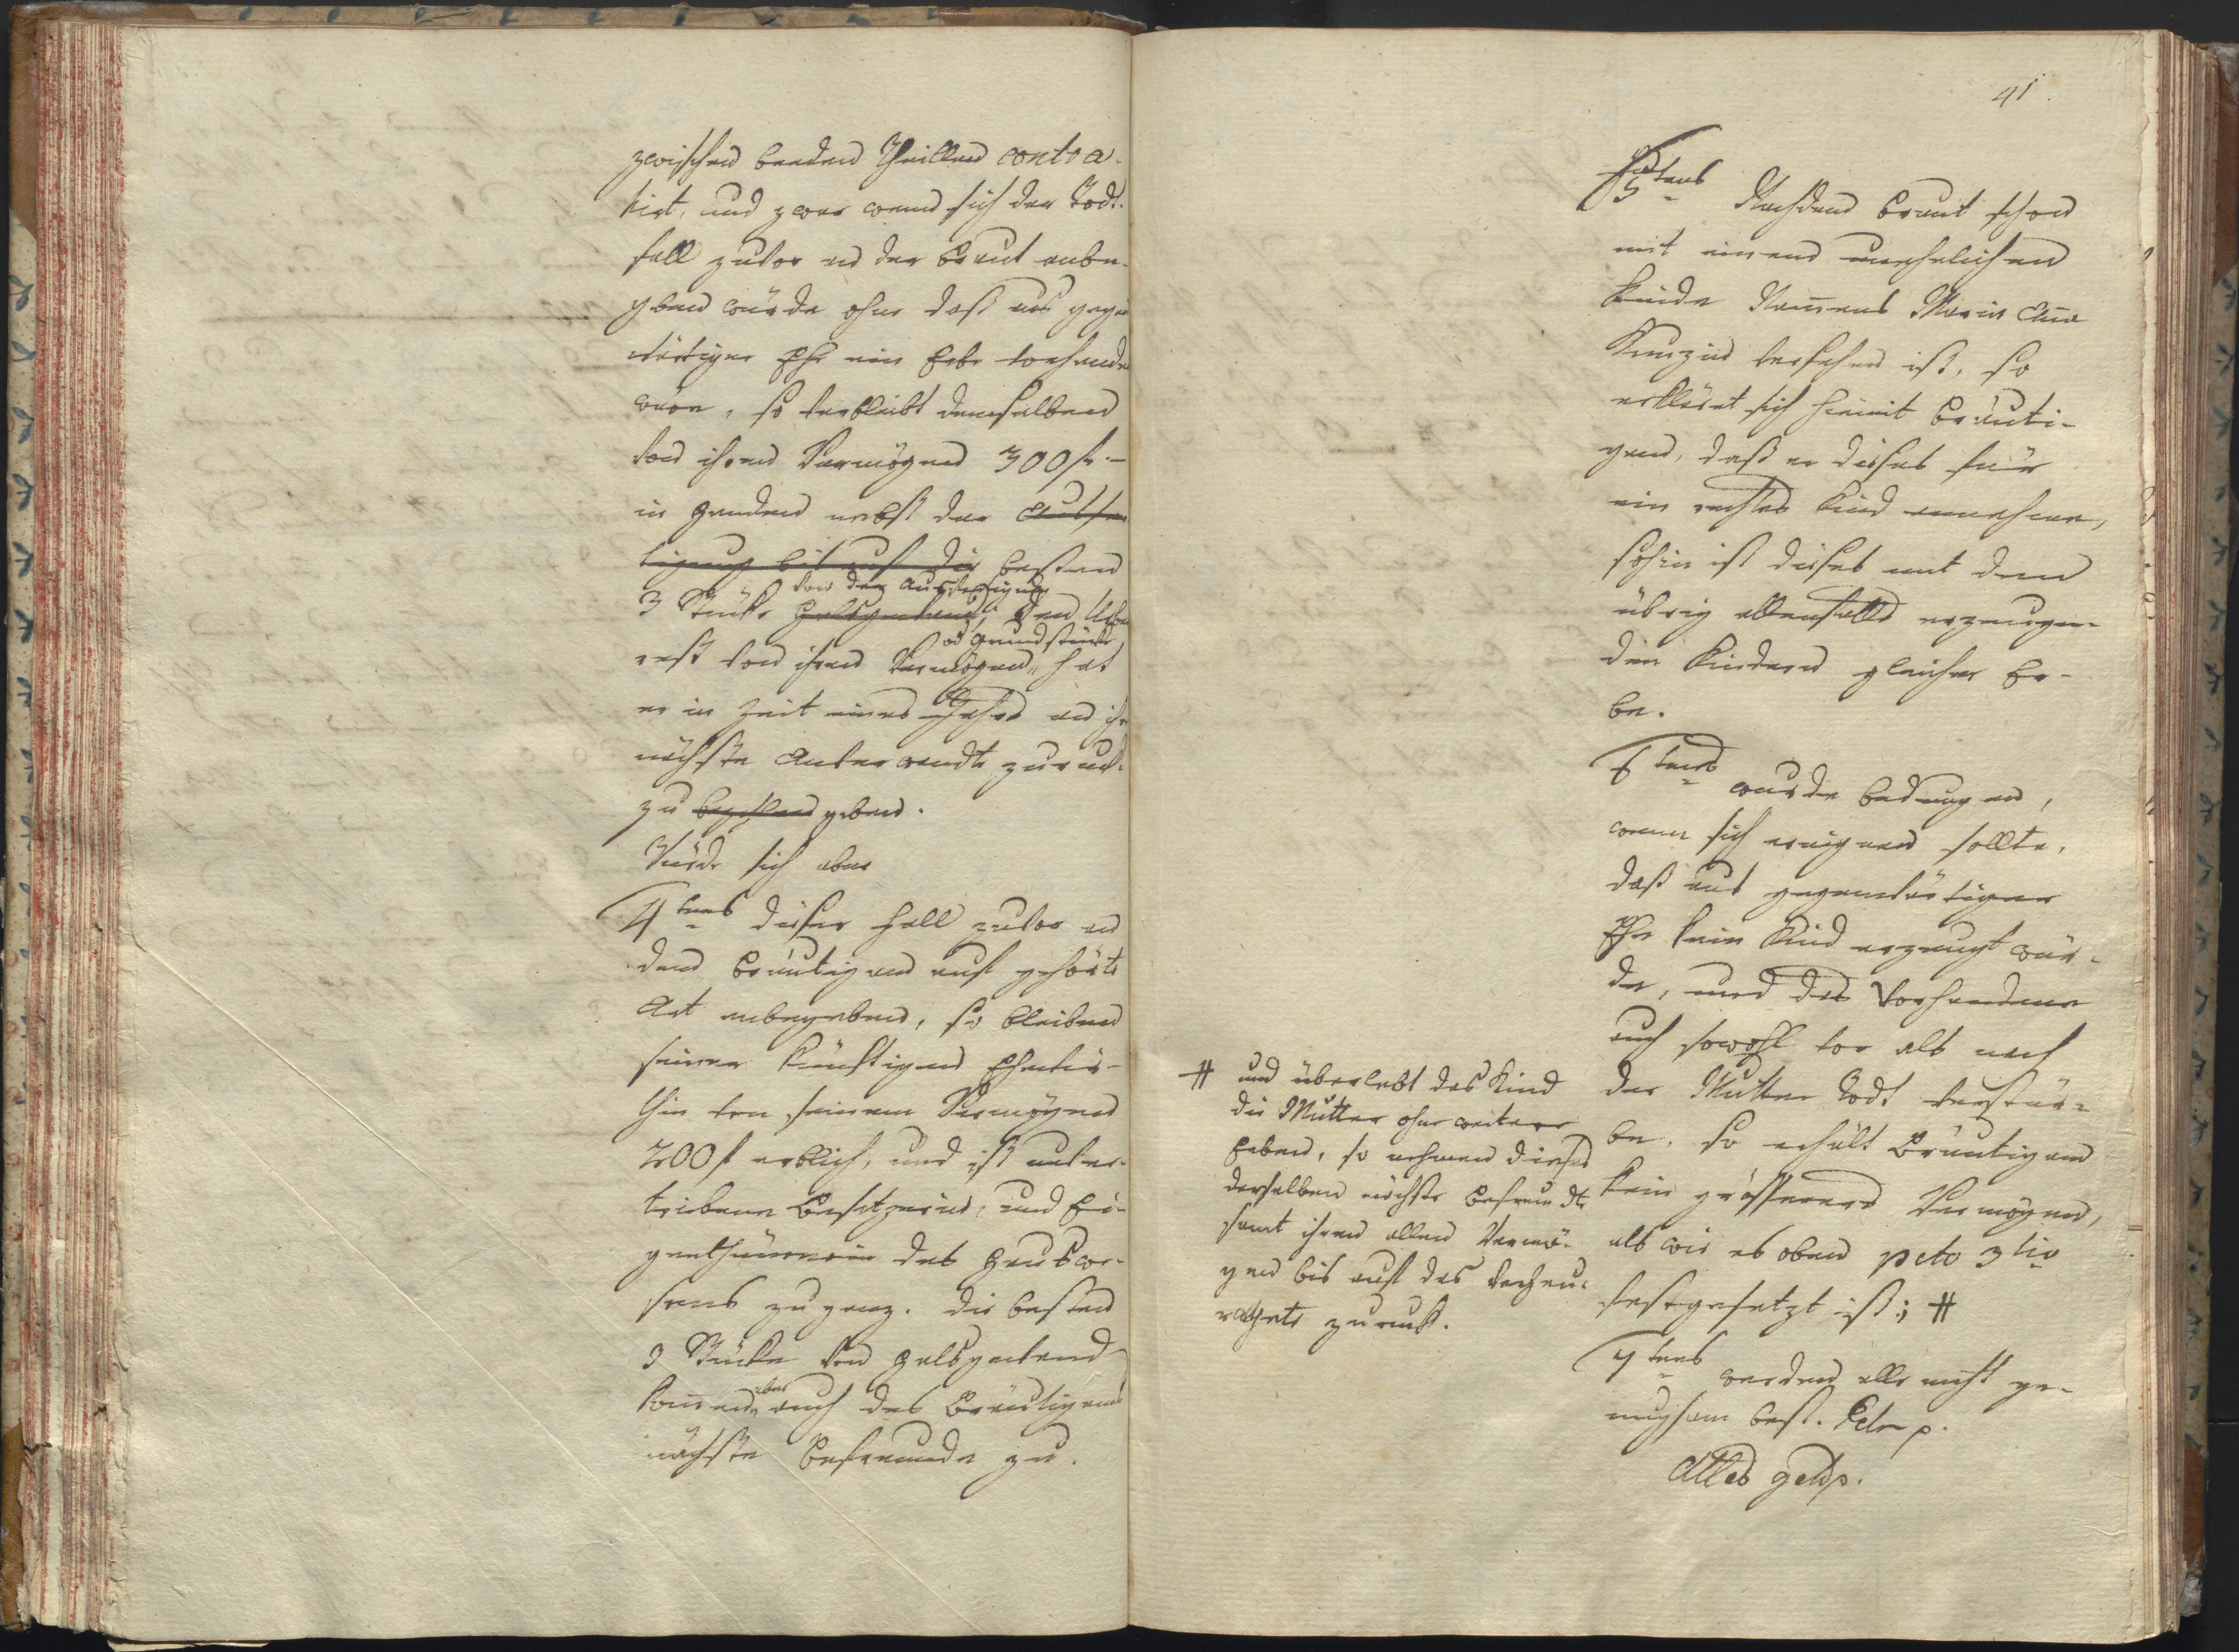 zwischen beeden Theillen contra-
hirt, und zwar wenn sich der Todt-
fall zuvor an der Braut anbe-
geben würde ohne daß aus gegen
wärtiger Ehe ein Erbe vorhanden
wäre, so verbleibt demselben
von ihren Vermögen 300 fl.
in Handen nebst der Ausfer
tigung bis auf die besten
3 Stücke Halsgehäng, den Uiber
von der Ausfertigung
rest von ihren Vermögen hat
od Grundstücke
er in Zeit eines Jahrs an ihre
nächste Anverwandte zuruk-
zu bezahlen geben.
Würde sich aber
4tens dieser Fall zuvor an
dem Bräutigam auf gehörte
Art anbegeben, so bleiben
seiner künftigen Ehewir-
thin von seinem Vermögen
200 fl erblich, und ist unver-
triebene Besitzerin, und Ei-
genthümerin des Hauswe-
sens zu ganz. Die besten
3 Stücke von Halsgewand
kom̅en aber auch des Bräutigams
nächste Befreunde zu.
41
5tens Nachdem Braut schon
mit einem unehelichen
Kinde Namens Maria An̅a
versehen ist, so
erkläret sich hiemit Bräuti-
gam, daß er dieses für
ein rechtes Kind annehme,
sohin ist dieses mit den
übrig allenfalls erzeugen-
den Kindern gleicher Er-
be.
6tens wurde bedungen,
wenn sich ereignen sollte,
daß aus gegenwärtiger
Ehe kein Kind erzeugt wür-
de, und das Vorhandene
auch sowohl vor als nach
der Mutter Todt verstür-
be, so erhält Bräutigam
kein grösseres Vermögen,
als wie es oben pcto 3tio
festgesetzt ist; #
# und überlebt das Kind
die Mutter ohne weitere
Erben, so nehmen dieses
derselben nächste Befreundte
samt ihren allen Vermö-
gen bis auf das verheu-
rathete zuruk.
7tens werden alle nicht ge-
nugsam best. Fälle p.
Alles gethp.